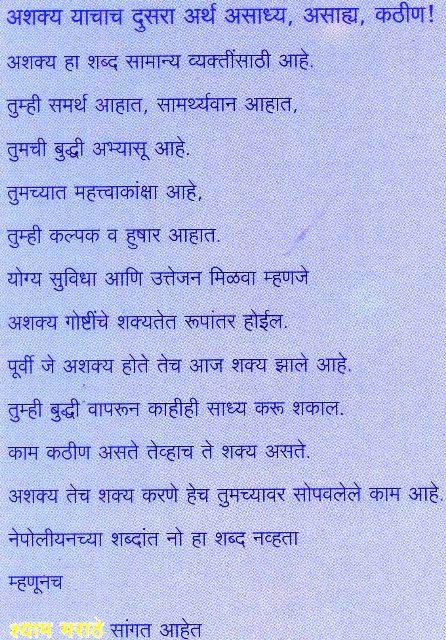 अशक्य याचाच दुसरा अर्थ असाध्य, असाह्य, कठीण!
अशक्य हा शब्द सामान्य व्यक्तींसाठी आहे.
तुम्ही समर्थ आहात, सामर्थ्यवान आहात,
तुमची बुद्धी अभ्यासू आहे.
तुमच्यात महत्त्वाकांक्षा आहे,
तुम्ही कल्पक व हुषार आहात.
योग्य सुविधा आणि उत्तेजन मिळवा म्हणजे
अशक्य गोष्टींचे शक्यतेत रूपांतर होईल.
पूर्वी जे अशक्य होते तेच आज शक्य झाले आहे.
तुम्ही बुद्धी वापरून काहीही साध्य करू शकाल.
काम कठीण असते तेव्हाच ते शक्य असते.
अशक्य तेच शक्य करणे हेच तुमच्यावर सोपवलेले काम आहे.
नेपोलीयनच्या शब्दांत नो हा शब्द नव्हता
म्हणूनच
श्याम मराठे सांगत आहेत